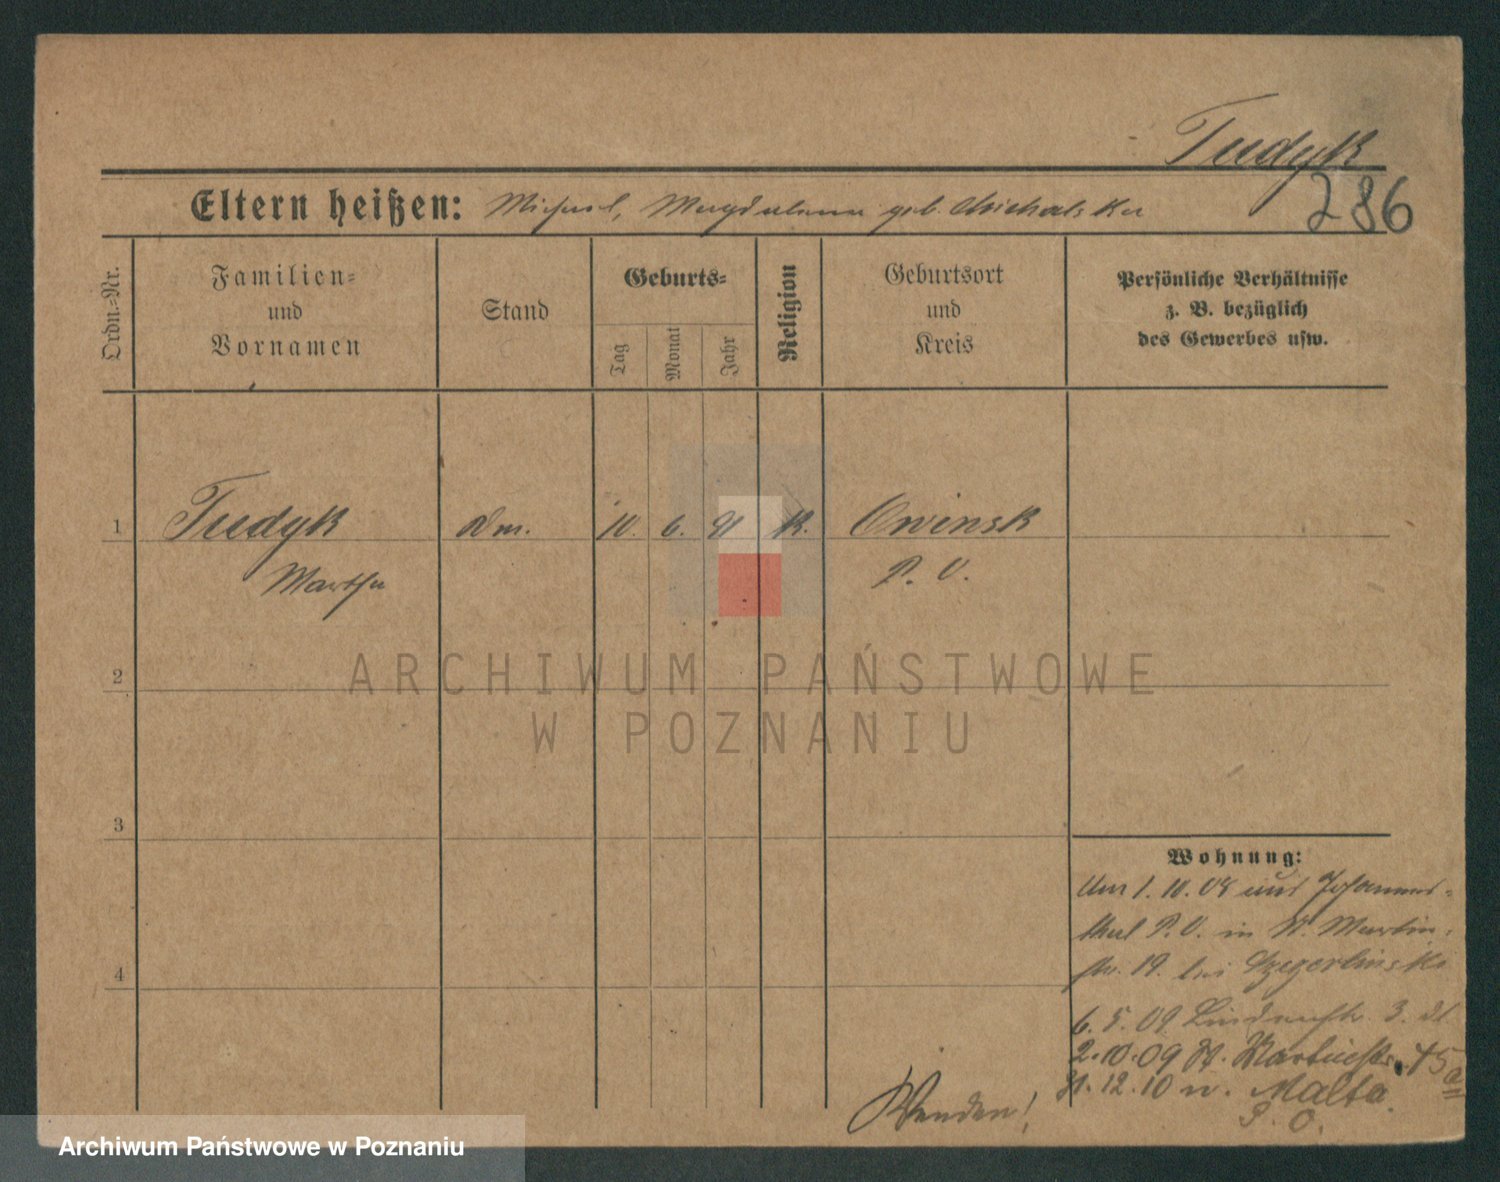 Tudyk
286
Eltern heißen: Michael, Magdalena geb. Michalska
Ordn.=Nr.
Familien=
und
Vornamen
Stand
Geburts=
Tag
Monat
Jahr
Religion
Geburtsort
und
Kreis
Persönliche Verhältnisse
z. B. bezüglich
des Gewerbes usw.
1 Tudyk 10. 6. 91 K. Owinsk
Martha P. O.
2
3
4
Wohnung:
Am 1. 10. 08 aus Johannes-
thal P. O. in St. Martin-
str. 19. bei
6. 5. 09 Lindenstr. 3.
2.10.09 St. Martinstr. 45a
31.12.10 n. Malta
P. O.
Wenden!
ARCHIWUM PAŃSTWOWE
W POZNANIU
Archiwum Państwowe w Poznaniu